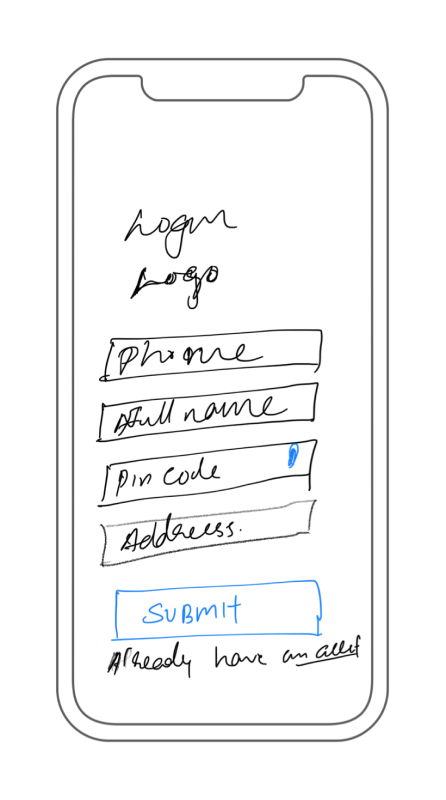 Login
Logo
Phone
Full name
Pin code
Address.
SUBMIT
Already have an